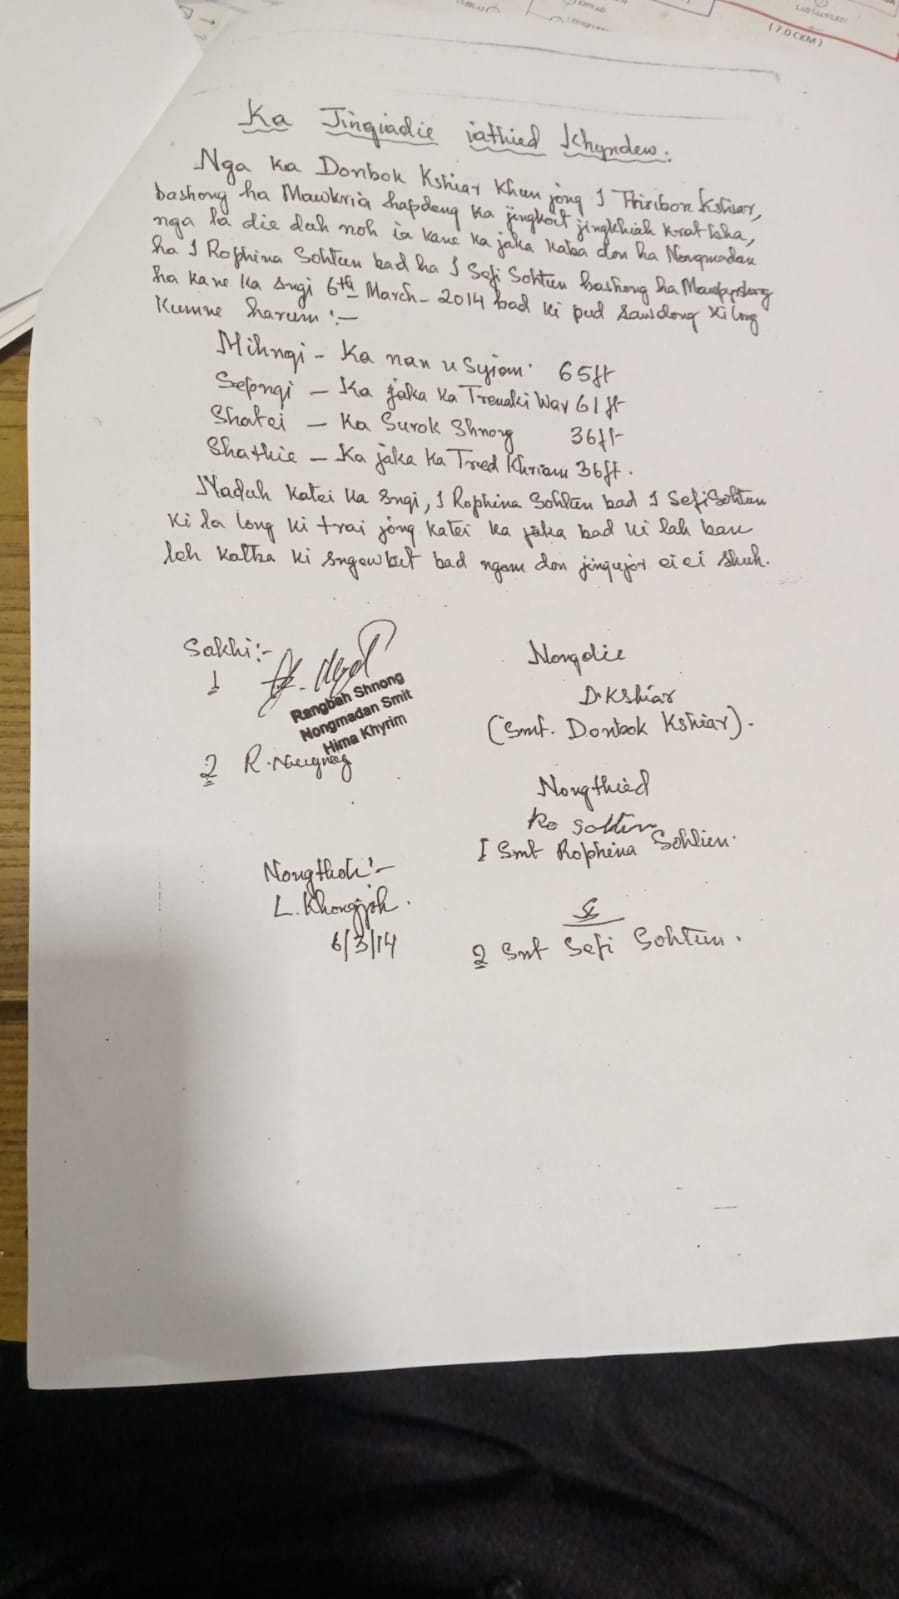 (7.0CKM)
Ka Jingiadie iathied Khyndew:
Nga ka Donbok Kshiar Khun jong I Thiribon Kshiar,
bashong ha Mawkria hapdeng ka jingkoit jingkhiah krat laka,
nga la die duh noh ia kane ka jaka kaba don ha Nongmadan
ha I Rophina Sohtun bad ha I Sefi Sohtun bashong ha
ha kane ka sngi 6th March-2014 bad ki pud sawdong ki long
Kumne harum:-
Mihngi - Ka nan u Syiem 65ft
Sepngi - Ka jaka ka Trenalki War 61ft
Shatei - Ka Surok Shnong 36ft
Shathie - Ka jaka ka Tried Khriam 36ft.
Naduh katei ka sngi, I Rophina Sohtun bad I Sefi Sohtun
ki la long ki trai jong katei ka jaka bad ki lah ban
leh katba ki sngewbit bad ngam don jingujor ei ei shuh.
Sakhi:-
1
Rangbah Shnong
Nongmadan Smit
Hima Khyrim
2 R.
Nongdie
D. Kshiar
(Smt. Donbok Kshiar).
Nongthied
Ro Sohtun
1 Smt Rophina Sohtun.
Nongthoh:-
L. Khongjoh.
6/3/14
2 Smt Sefi Sohtun.